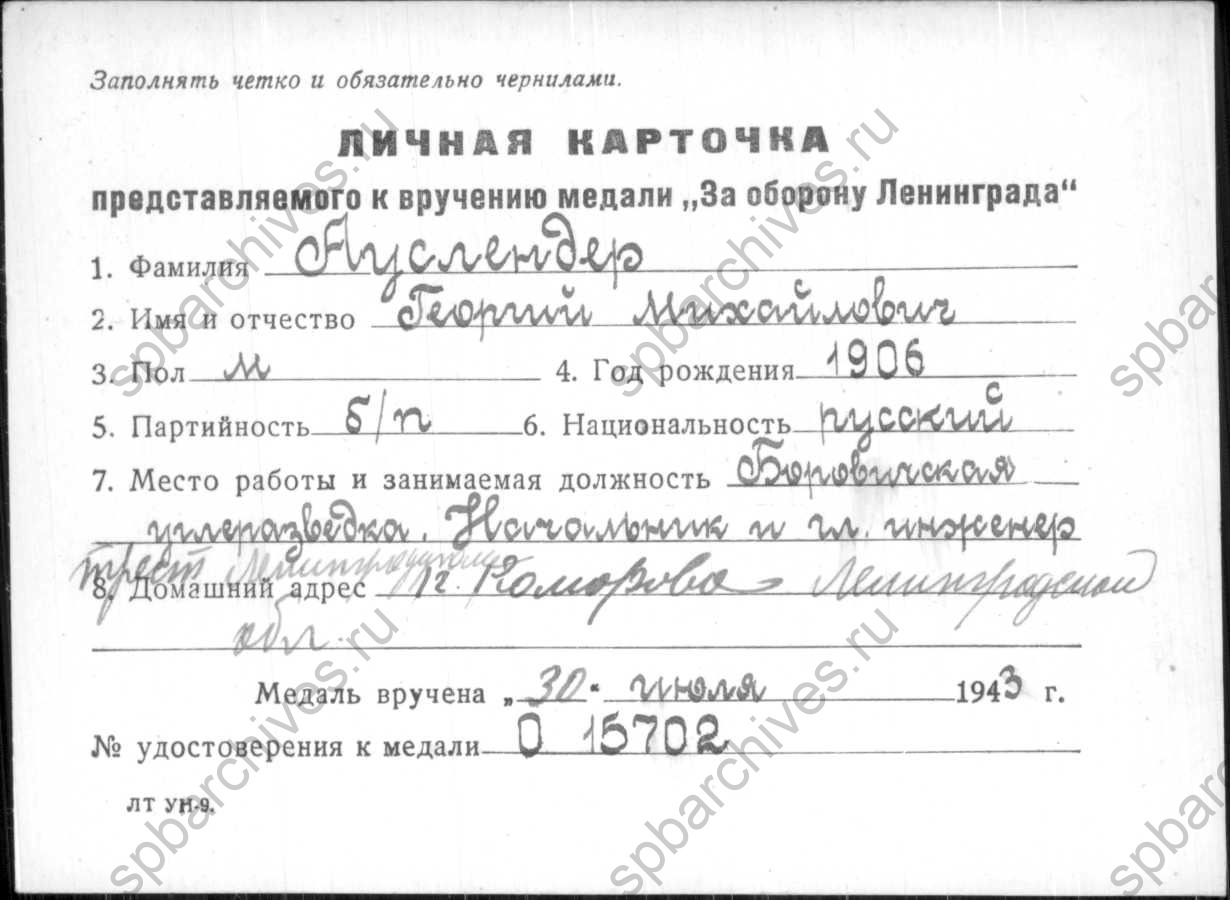 Заполнять четко и обязательно чернилами.
ЛИЧНАЯ КАРТОЧКА
представляемого к вручению медали „За оборону Ленинграда“
1. Фамилия Ауслендер
2. Имя и отчество Георгий Михайлович
3. Пол м 4. Год рождения 1906
5. Партийность б/п 6. Национальность русский
7. Место работы и занимаемая должность Боровичская
углеразведка. Начальник и гл. инженер
трест
8. Домашний адрес г. Комарово Ленинградской
обл.
Медаль вручена „30“ июля 1943 г.
№ удостоверения к медали О 15702
ЛТ УН-9.
spbarchives.ru
spbarchives.ru
spbarchives.ru
spbarchives.ru